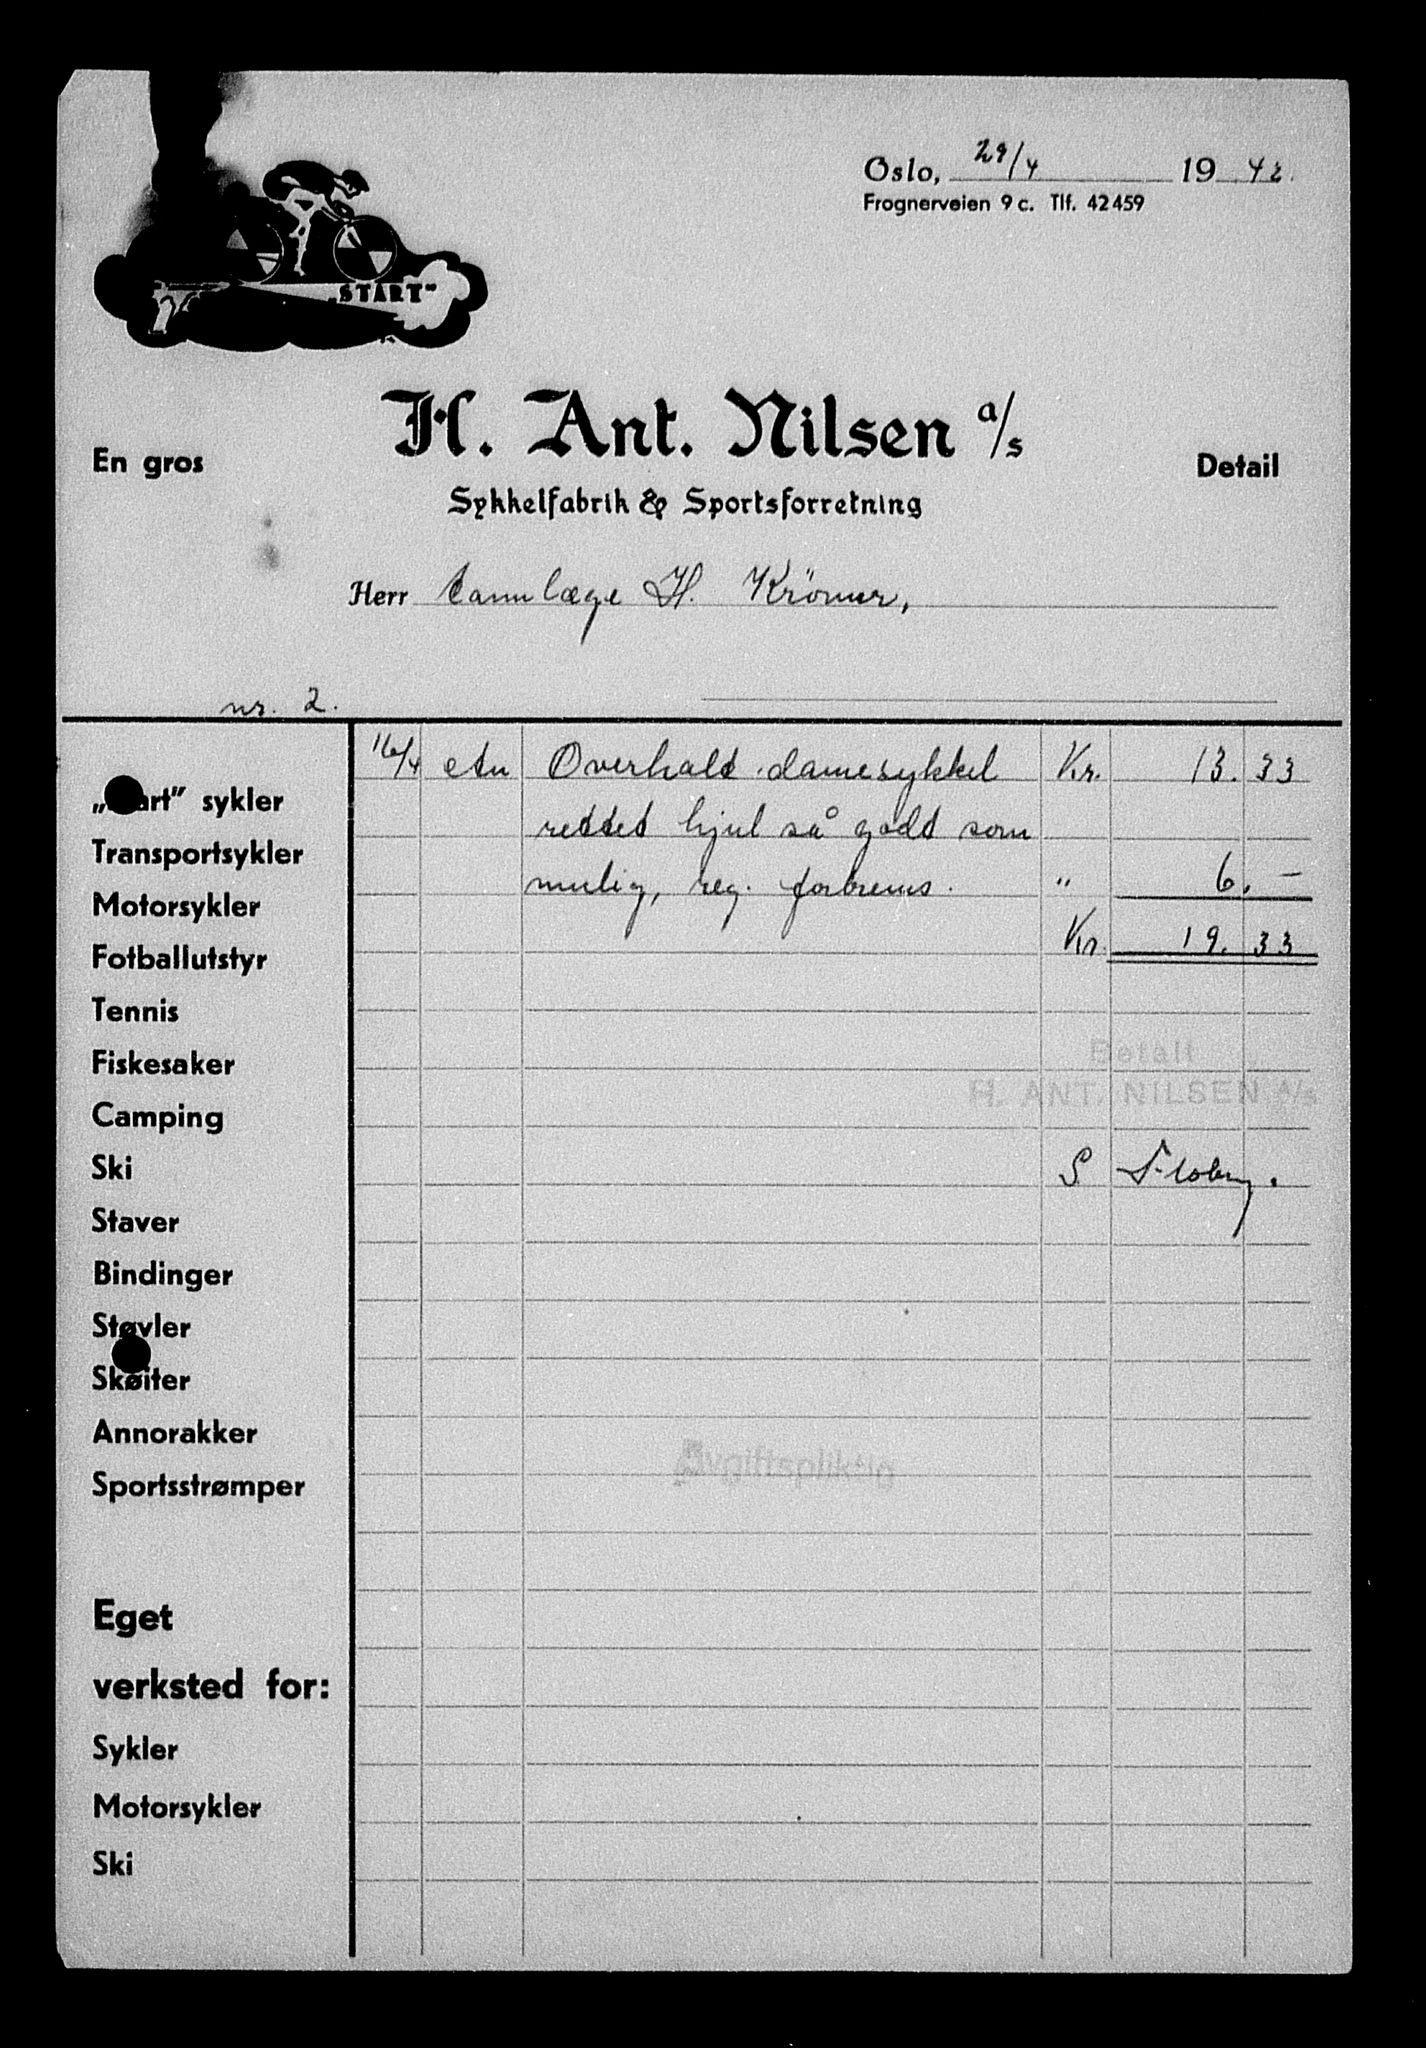 Oslo, 29/4 1942.
Frognerveien 9 c. Tlf. 42459
„START"
H. Ant. Nilsen a/s
En gros
Detail
Sykkelfabrik & Sportsforretning
Herr tannlæge H. Krömer,
nr. 2.
16/4 en Overhalt damesykkel Kr. 13.33
rettet hjul så godt som
mulig, reg. forbrems. " 6.-
Kr. 19.33
Betalt
H. ANT. NILSEN A/S
S.
Avgiftspliktig
„Start" sykler
Transportsykler
Motorsykler
Fotballutstyr
Tennis
Fiskesaker
Camping
Ski
Staver
Bindinger
Støvler
Skøiter
Annorakker
Sportsstrømper
Eget
verksted for:
Sykler
Motorsykler
Ski